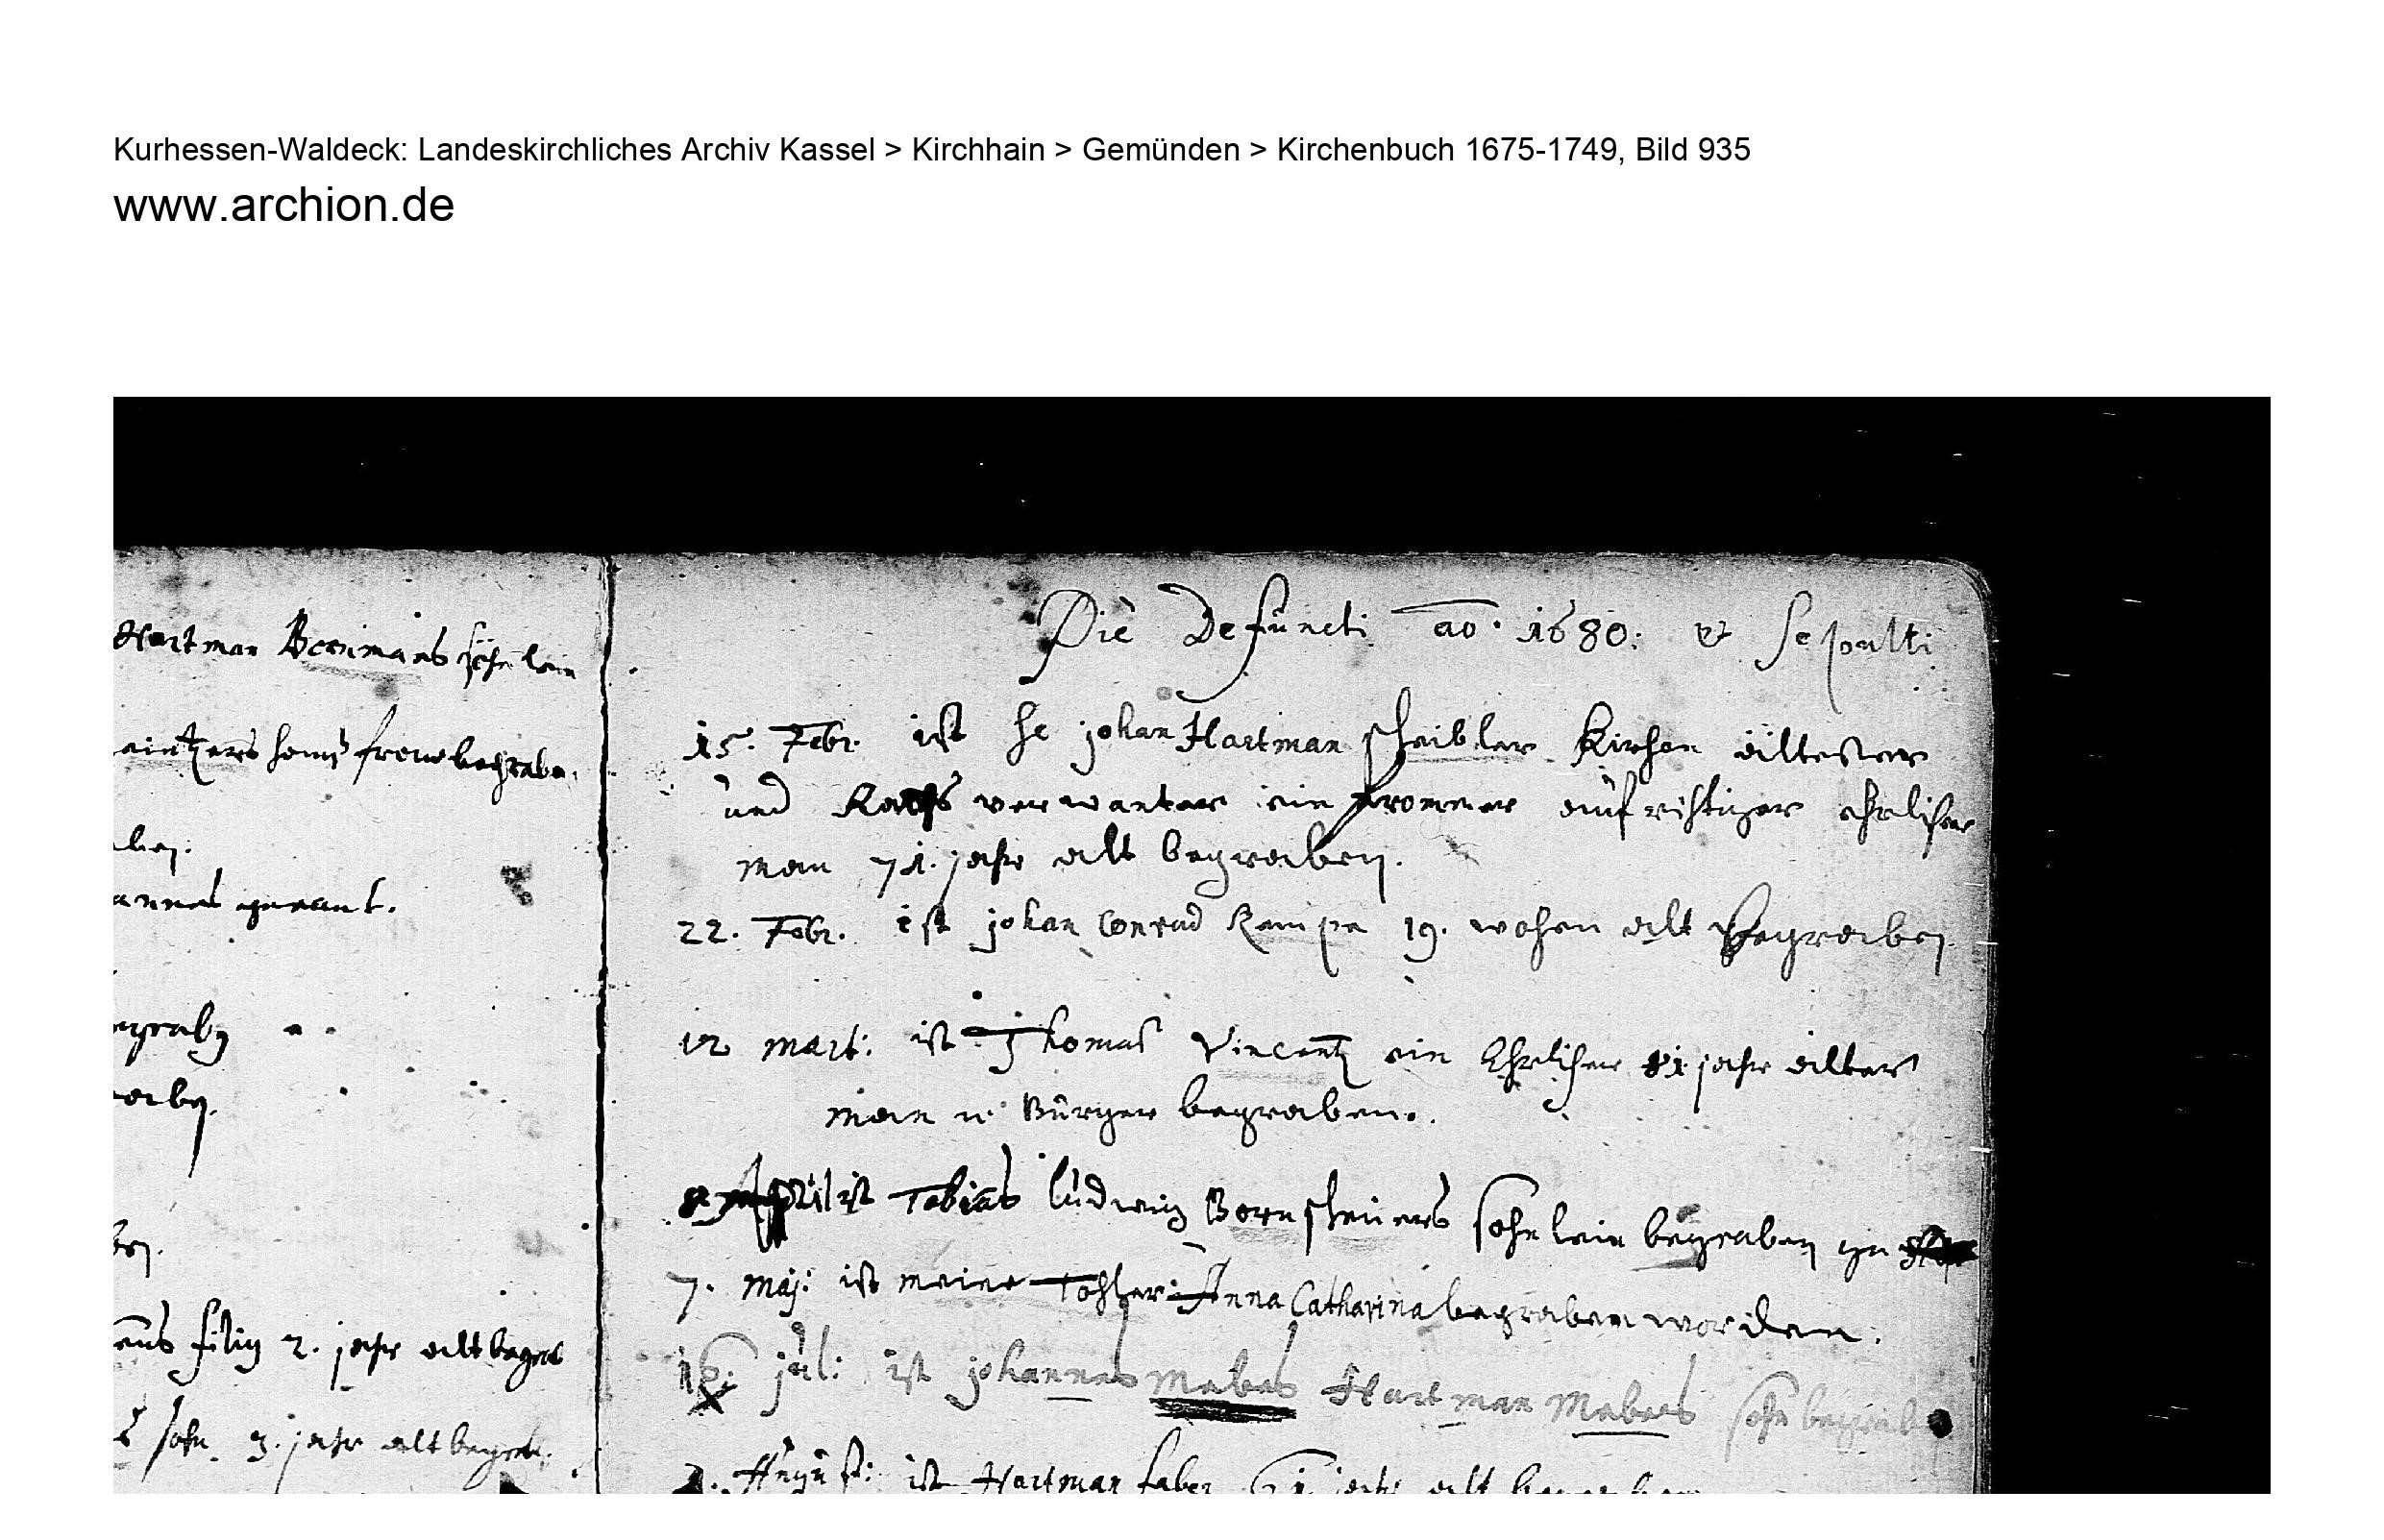 Kurhessen-Waldeck: Landeskirchliches Archiv Kassel > Kirchhain > Gemünden > Kirchenbuch 1675-1749, Bild 935
www.archion.de
Hartman söhnlein
frow begrabe.
annes genant.
filig 2. jahr alt begra
sohn 3. jahr alt begrab.
Die Defuncti ao. 1680. et Sepulti
15. Febr. ist He johan Hartman scheibler Kirchen ältester
und Raths verwanter ein frommer aufrichtiger ehrlicher
man 71. jahr alt begraben.
22. Febr. ist johan Conrad Kempe 19. wochen alt begraben.
12 mart: ist Thomas Vincentz ein Ehrlicher 81 jahr alter
man u Bürger begraben.
8 April ist Tobias Ludwig Bornscheuers sohnlein begraben
7. Maj: ist meine Tochter Anna Catharina begraben worden.
16. jul: ist johannes Mebes Hartman Mebes sohn begrab
August: ist Hartman faber 61. jahr alt begraben